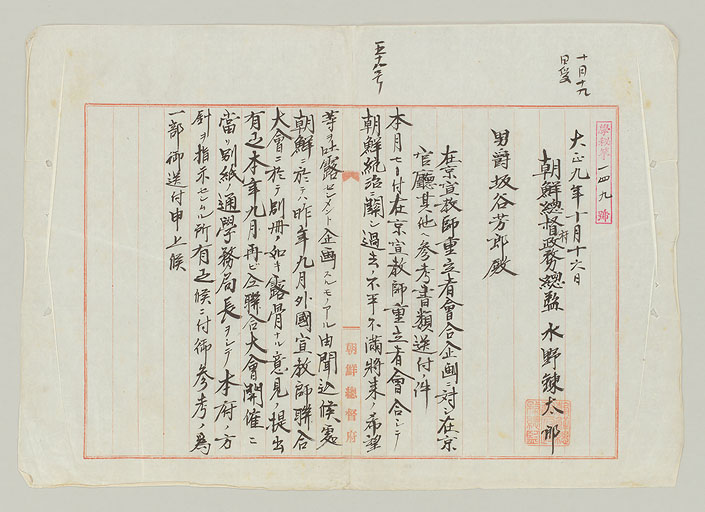 十月十九
日受
學秘第一四九號
大正九年十月十六日
朝鮮總督府政務總監 水野錬太郎
男爵 坂谷芳郎殿
在京宣教師重立者會合企画ニ対シ在京
官廳其他ヘ参考書類送付ノ件
本月七日付在京宣教師重立者會合シテ
朝鮮統治ニ関シ過去ノ不平不満將来ノ希望
等ヲ吐露セシメント企画スルモノアル由聞込候處
朝鮮ニ於テハ昨年九月外國宣教師聯合
大會ニ於テ別冊ノ如キ露骨ナル意見ノ提出
有之本年九月再ビ仝聯合大會開催ニ
當リ別紙ノ通學務局長ヲシテ本府ノ方
針ヲ指示セシメタル所有之候ニ付御参考ノ為
一部御送付申上候
朝鮮總督府